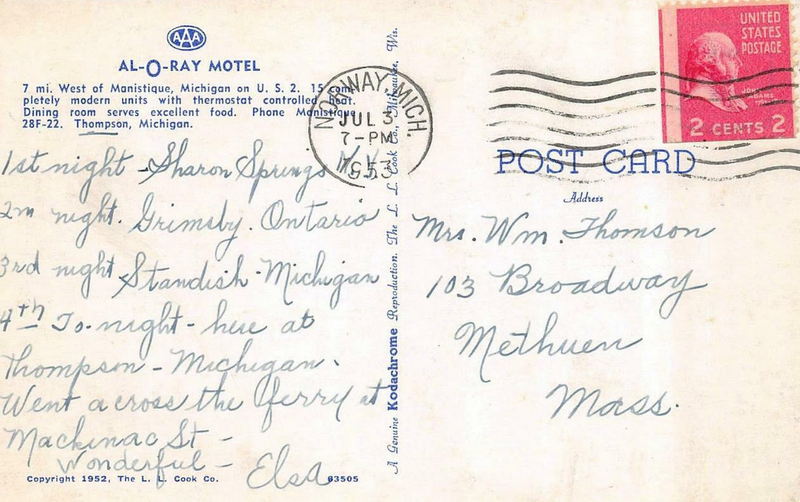 AAA
AL-O-RAY MOTEL
7 mi. West of Manistique, Michigan on U. S. 2. 15
pletely modern units with thermostat controlled heat.
Dining room serves excellent food. Phone Manistique
28F-22. Thompson, Michigan.
1st night - Sharon Springs N.Y.
2nd night. Grimsby. Ontario
3rd night Standish - Michigan
4th To-night - here at
Thompson - Michigan.
Went across the ferry at
Mackinac St -
Wonderful - Elsa
Copyright 1952, The L. L. Cook Co. 63505
A Genuine Kodachrome Reproduction. The L. L. Cook Co., Milwaukee, Wis.
NORWAY, MICH.
JUL 3
7-PM
1953
UNITED
STATES
POSTAGE
JOHN
ADAMS
2 CENTS 2
POST CARD
Address
Mrs. Wm. Thomson
103 Broadway
Methuen
Mass.